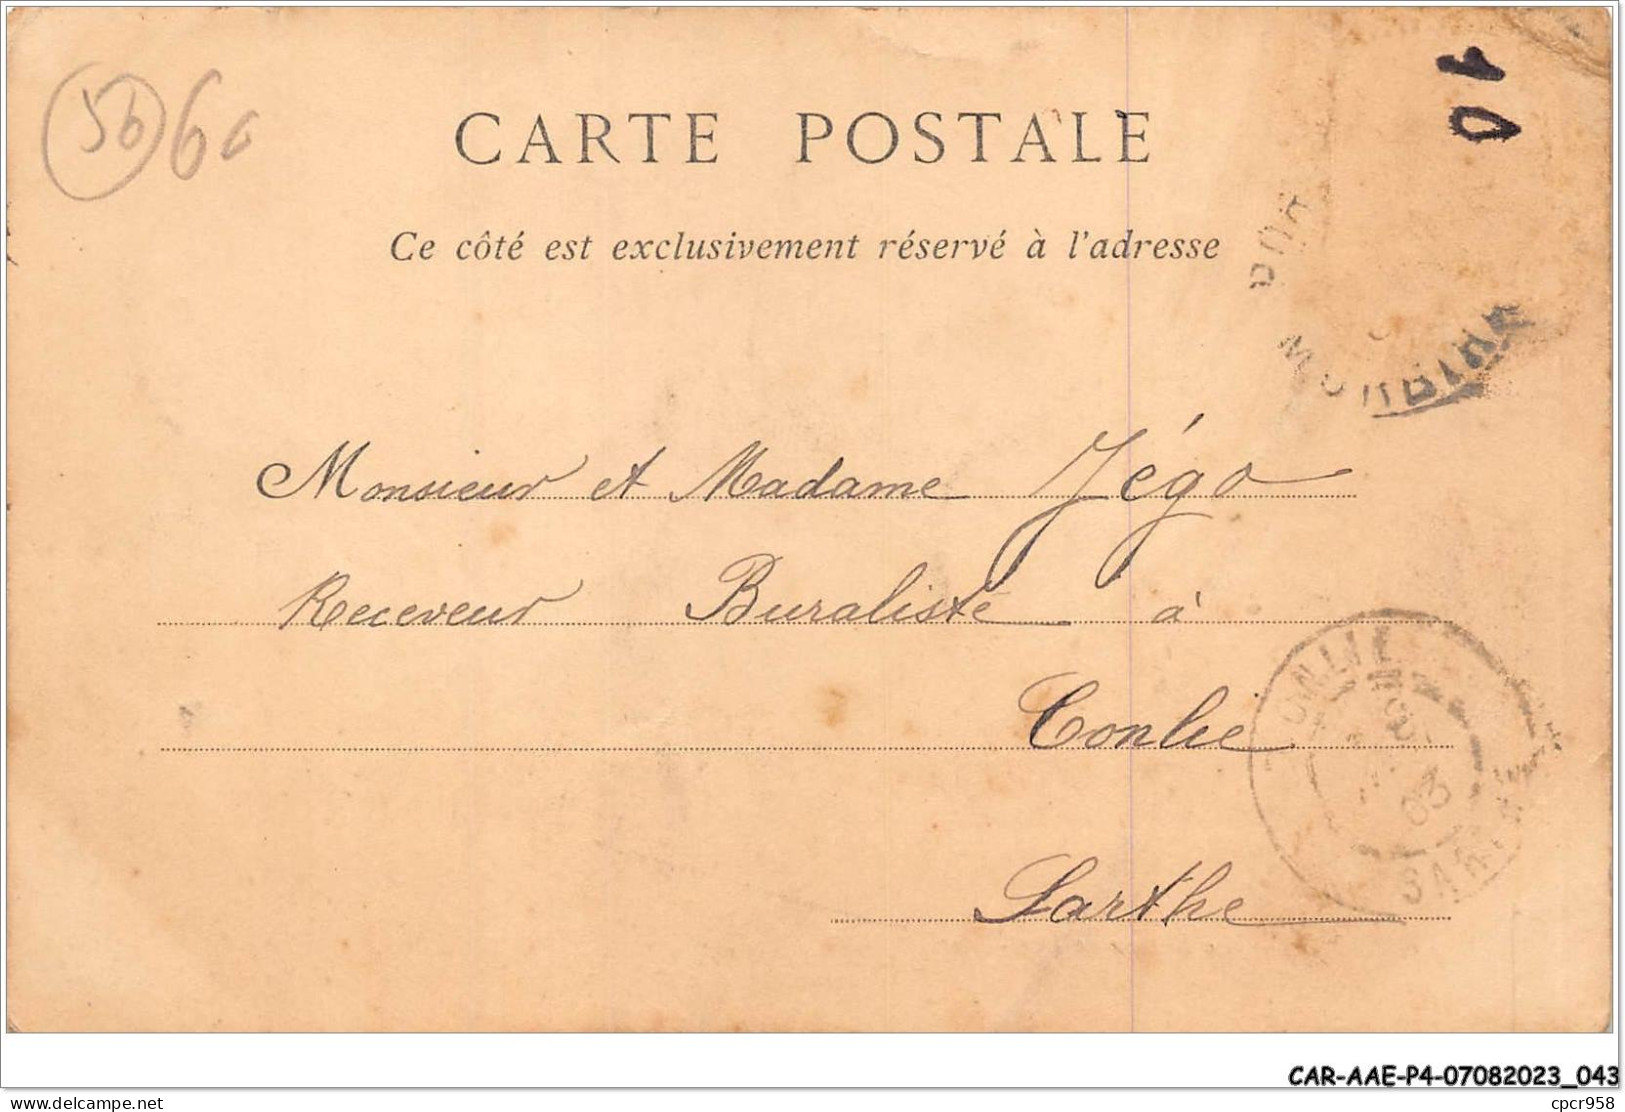 56 60
10
CARTE POSTALE
Ce côté est exclusivement réservé à l'adresse
MORBIHAN
Monsieur et Madame Jégo
Receveur Buraliste à
Conlie
Sarthe
CONLIE
03
SARTHE
CAR-AAE-P4-07082023_043
delcampe.net
cpcr958